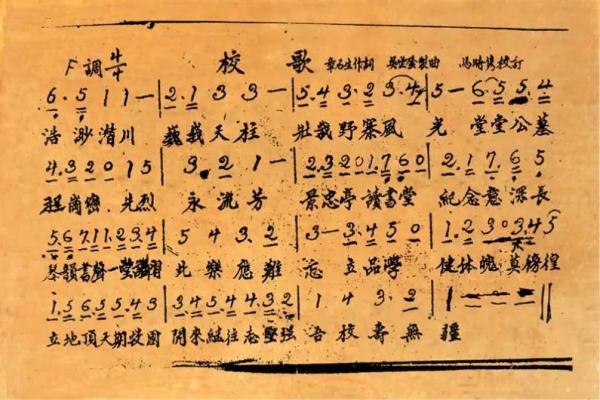 F調 4/4 校 歌 石生作詞 製曲 時 校訂
6. 5 1 1 — | 2. 1 3 3 — | 5. 4 3. 2 3. 4 | 5 — 6. 5 5. 4
浩渺潛川 巍峩天柱 壯哉野寨風 光 堂堂公墓
4. 3 2 0 1 5 | 3. 2 1 — | 2. 3 2 0 1. 7 6 0 | 2. 1 7. 6 5
崗巒.先烈 永流芳 景忠亭讀書堂 紀念意深長
5. 6 7. 1 1. 2 3. 4 | 5 4 3. 2 | 3 — 3. 4 5 0 | 1. 2 3 0 3. 4 5
琴韻書聲一堂講習 此樂應難 忘 立品學 健体魄 莫徬徨
1. 5 6 5 5. 4 3 | 3. 4 5. 4 4. 3 2 | 1 4 3. 2 | 1 — 0 — ||
立地頂天期救國 開來繼往志堅强 吾校壽無 疆